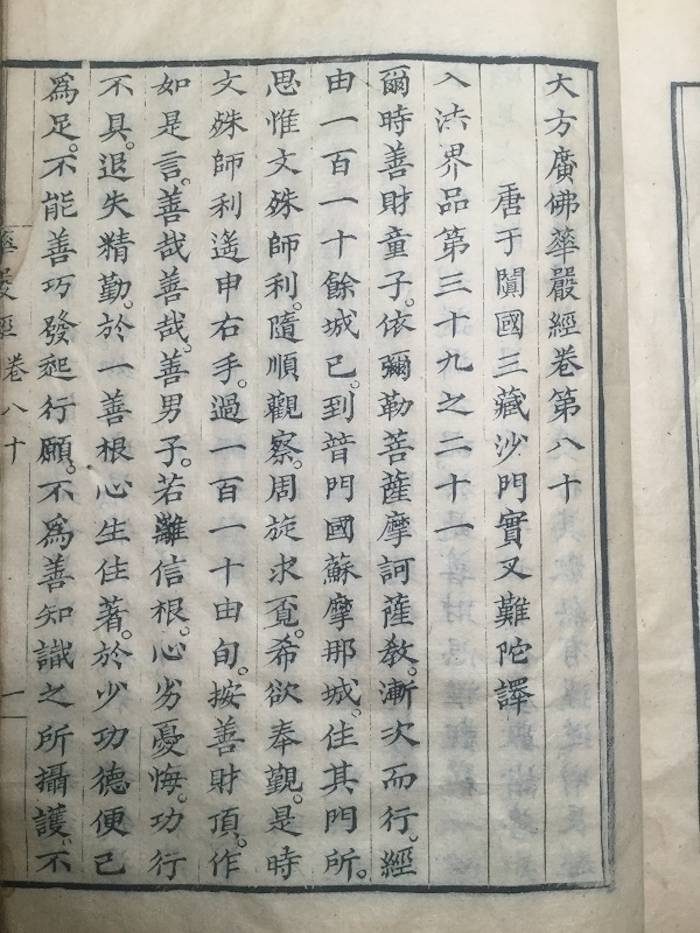 大方廣佛華嚴經卷第八十
唐于闐國三藏沙門實叉難陀譯
入法界品第三十九之二十一
爾時善財童子。依彌勒菩薩摩訶薩教。漸次而行。經
由一百一十餘城已。到普門國蘇摩那城。住其門所。
思惟文殊師利。隨順觀察。周旋求覓。希欲奉覲。是時
文殊師利遙申右手。過一百一十由旬。按善財頂。作
如是言。善哉善哉。善男子。若離信根。心劣憂悔。功行
不具。退失精勤。於一善根心生住著。於少功德便已
為足。不能善巧發起行願。不為善知識之所攝護。不
華嚴經卷八十 一